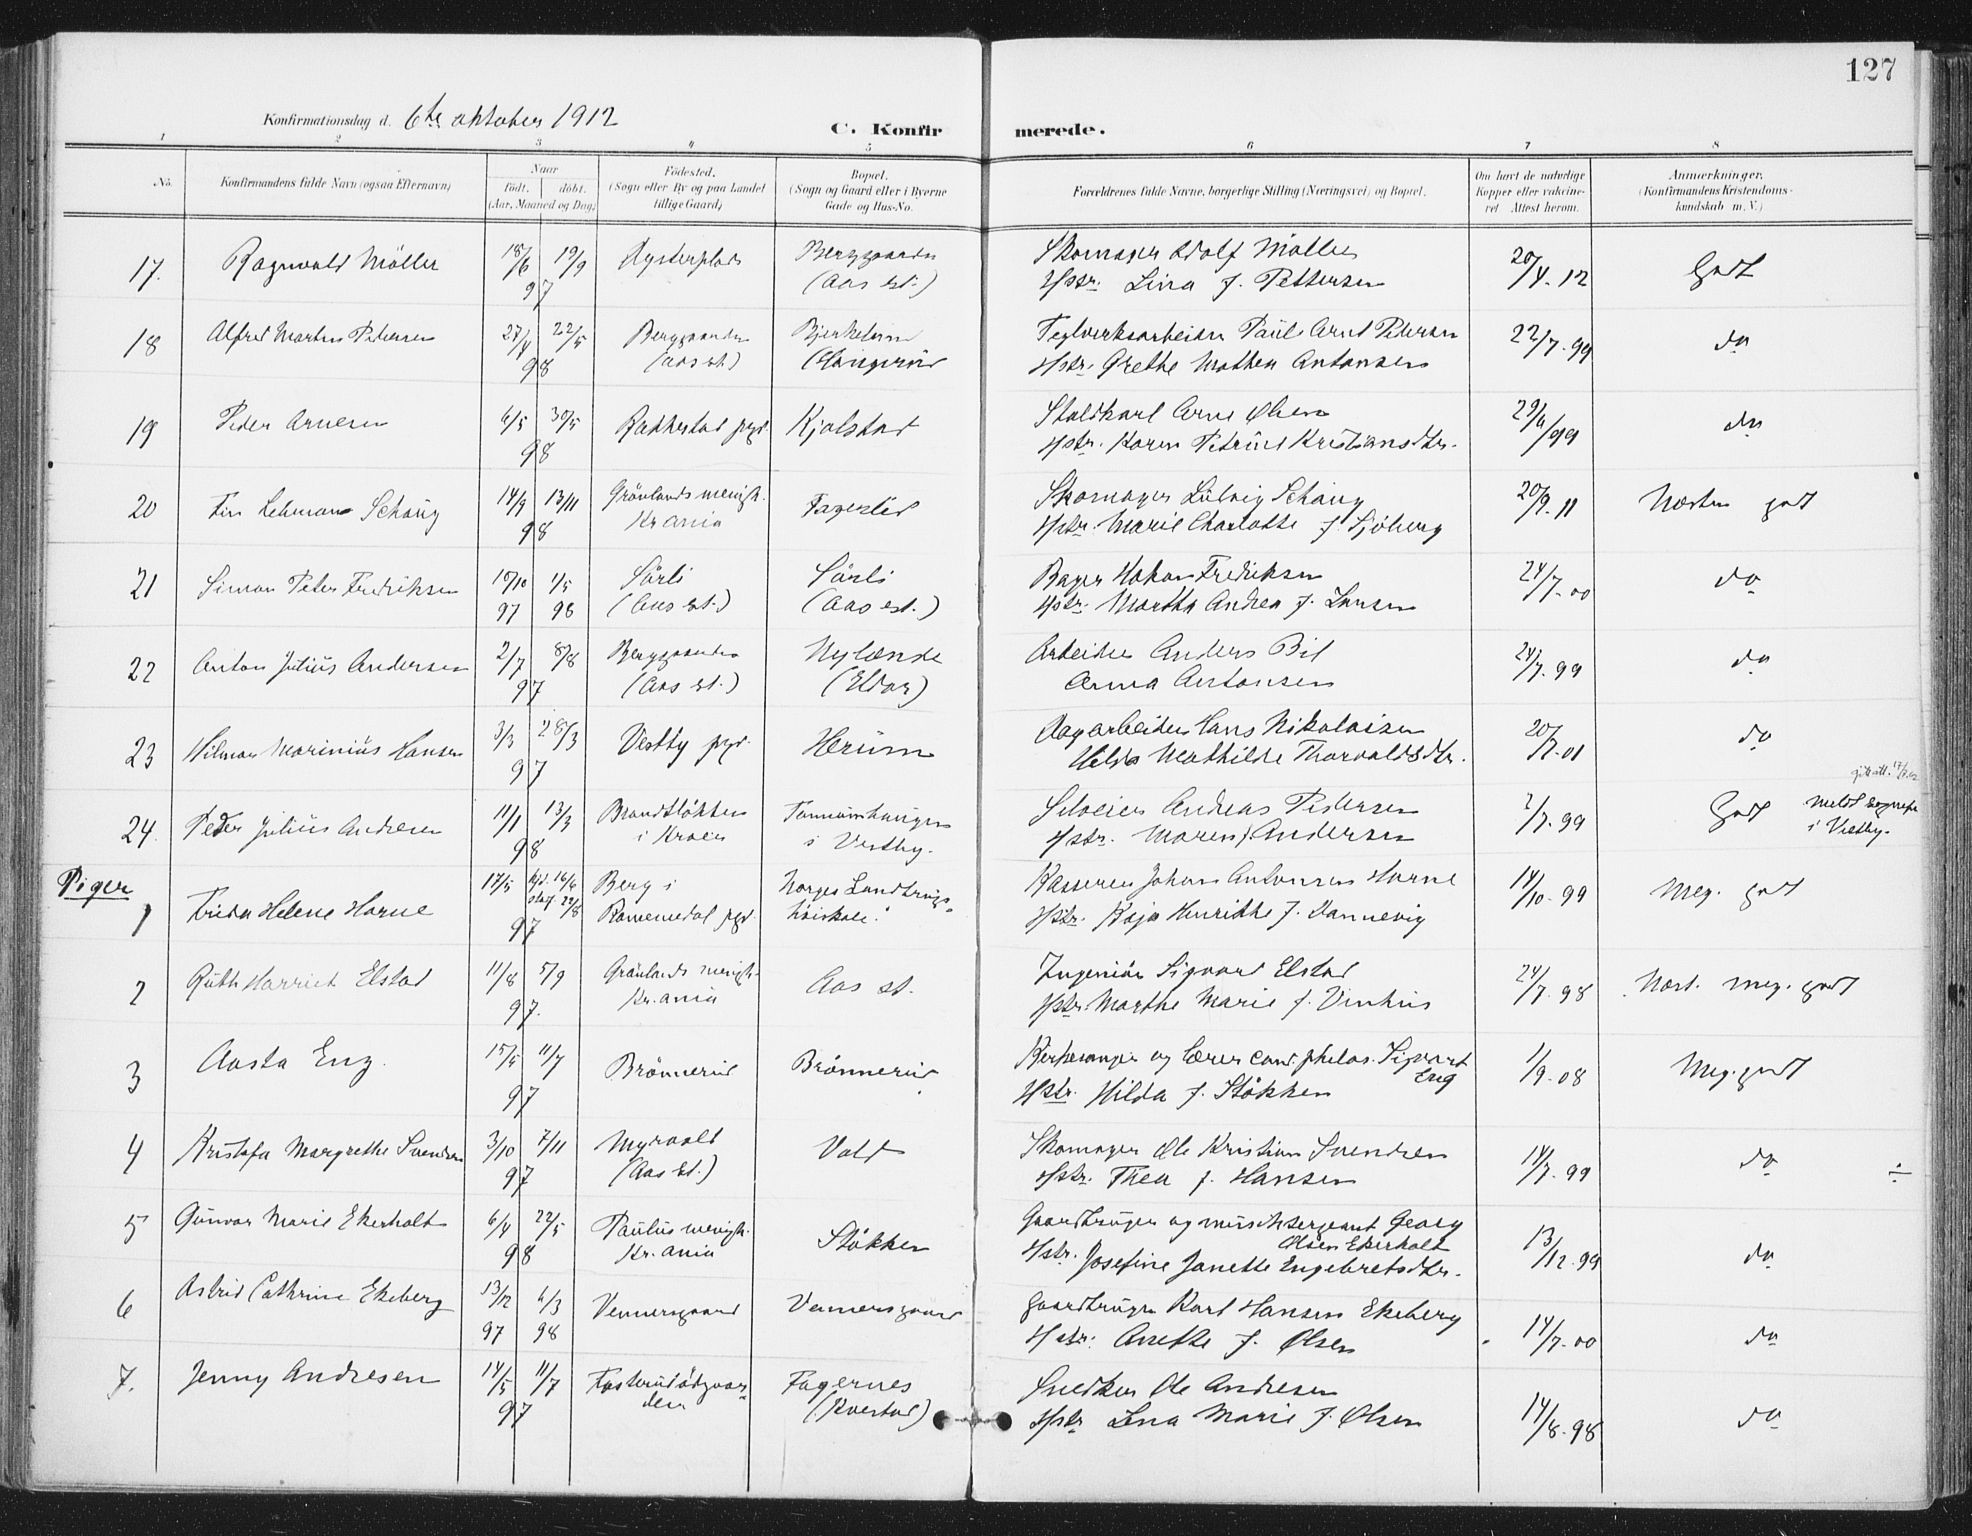 127
Konfirmationsdag d. 6te oktober 1912
C. Konfirmerede.
1 2 3 4 5 6 7 8
No. Konfirmandens fulde Navn (ogsaa Efternavn) Naar født. døbt. (Aar, Maaned og Dag) Fødested. (Sogn eller By og paa Landet tillige Gaard) Bopæl. (Sogn og Gaard eller i Byerne Gade og Hus-No. Forældrenes fulde Navne, borgerlige Stilling (Næringsvei) og Bopæl. Om havt de naturlige Kopper eller vakcineret Attest herom. Anmærkninger. (Konfirmandens Kristendomskundskab m. V.)
17. Ragnvald Möller 18/6 19/9 97 Bergggaarden (Aas st.) Skomager Adolf Möller
Hstr. Lina f. Pettersen 20/4-12 Godt
18 Alfred Martin Petersen 27/4 22/5 98 Berggaarden (Aas st.) Bjerkeheim Teglverksarbeider Paul Arnt Petersen
Hstr. Grethe Mathea Antonsen 22/7-99 do
19 Peder Arnesen 6/5 30/5 98 Rakkestad pgd. Kjølstad Staldkarl Arne Olsen
Hstr. Karen Petrine Kristiansdtr. 29/9 99 do
20 Fin Lehmann Schaug 14/9 13/11 98 Grönlands menigh. Kr.ania Fagerlid Skomager Ludvig Schaug
Hstr. Marie Charlotte f. Sjöberg 20/9-11 Næsten godt
21 Simon Peter Fredriksen 10/10 97 1/5 98 Sörli (Aas st.) Sörli (Aas st.) Bager Hakon Fredriksen
Hstr. Martha Andrea f. Larsen 24/7-00 do
22 Anton Julius Andersen 2/7 8/8 97 Berggaarden (Aas st.) Nylænde (Eldor) Arbeider Anders Bil
Anna Antonsen 24/7-99 do
23 Hilmar Marinius Hansen 3/3 28/3 97 Vestby pgd. Herum Dagarbeider Hans Nikolaisen
Hilda Mathilde Thorvaldsdtr. 20/7-01 do
24. Peder Julius Andresen 11/1 13/3 98 i Kroer i Vestby. Selveier Andreas Pedersen
Hstr. Maren f. Andersen 2/7-99 Godt meldt sognepr. i Vestby.
Piger
1 Frida Helene Horne 17/5 97 Berg i Romemedal pgd. Norges Landbrugshöiskole. Kasserer Johan Antonsen Horne
Hstr. Kaja Henrikke f. Dannevig 14/10-99 Meg. godt
2 Ruth Harriet Elstad 11/8 5/9 97. Grönlands menigh. Kr.ania Aas st. Ingeniör Sigvard Elstad
Hstr. Marthe Marie f. Vinhus 24/7-98 Næst. meg. godt
3 Aasta Eng. 15/5 11/7 97 Brönnerud Brönnerud Kirkesanger og lærer cand. philos. Sigvart Eng
Hstr. Hilda f. Stökken 1/9-08 Meg. godt
4 Kristofa Margrethe Svendsen 3/10 7/11 97 Myrvold (Aas st.) Vold Skomager Ole Kristian Svendsen
Hstr. Thea f. Hansen 14/7-99 do ÷
5 Gunvor Marie Ekerholt 6/4 22/5 98 Paulus menigh. Kr.ania Stökken Gaardbruger og musiksergeant Georg Olsen Ekerholt
Hstr. Josefine Janette Engebretsdtr. 13/12-99 do
6 Astrid Cathrine Ekeberg 13/12 97 6/3 98 Vennersgaard Vennersgaard Gaardbruger Karl Hansen Ekeberg
Hstr. Anette f. Olsen 14/7-00 do
7. Jenny Andresen 14/5 11/7 97 Fosterudödgaarden Fagernes (Kverstad) Snedker Ole Andresen
Hstr. Lena Marie f. Olsen 14/8-98 do